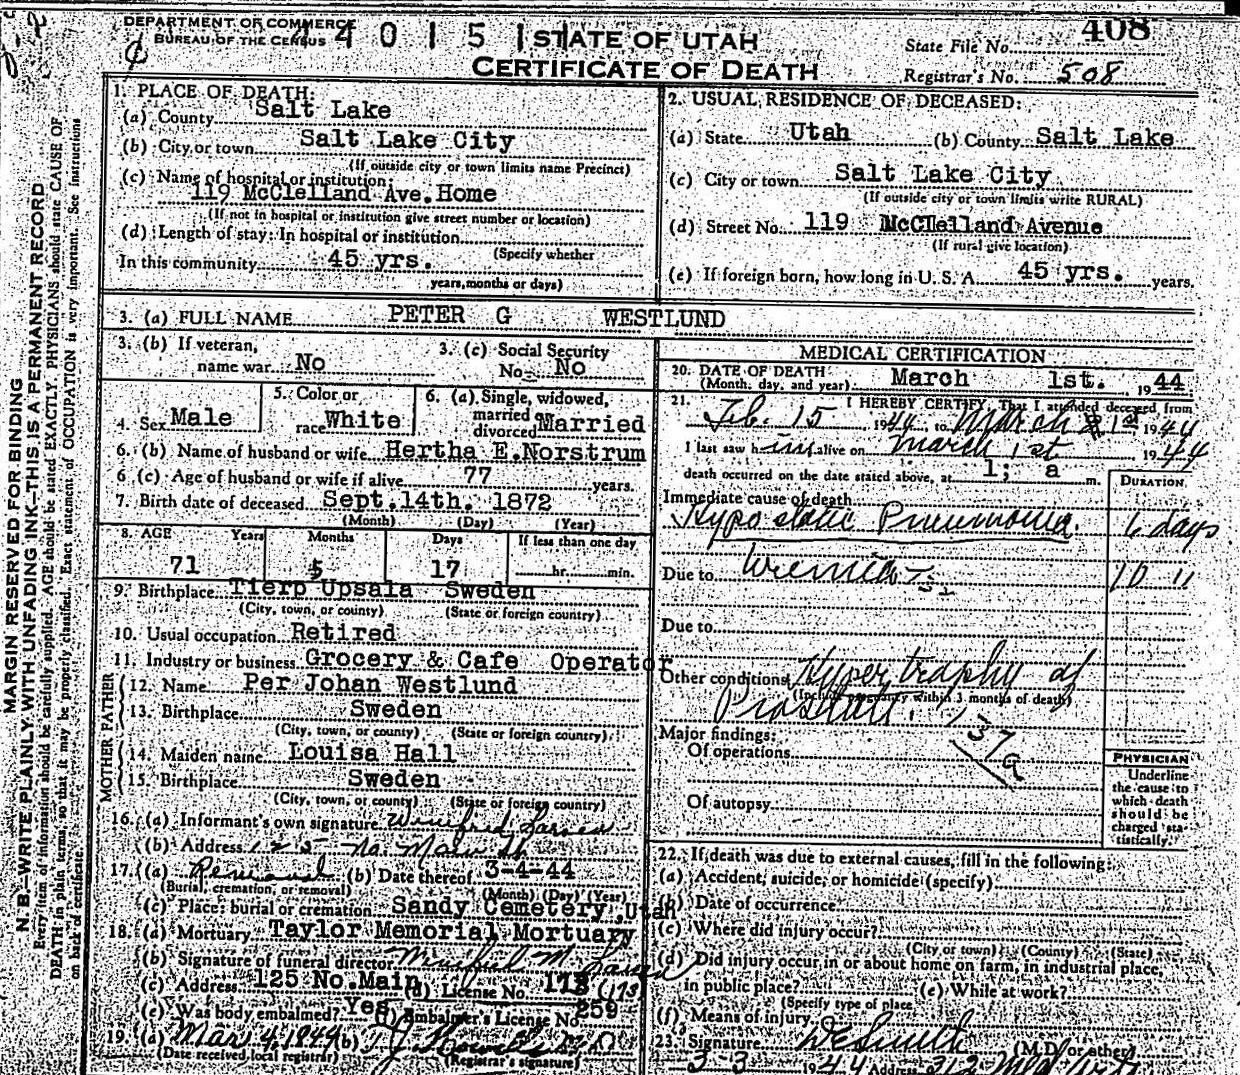 DEPARTMENT OF COMMERCE
BUREAU OF THE CENSUS
4 4 0 1 5 1
STATE OF UTAH
CERTIFICATE OF DEATH
408
State File No.
Registrar's No. 508
MARGIN RESERVED FOR BINDING
N. B.—WRITE PLAINLY WITH UNFADING INK—THIS IS A PERMANENT RECORD
Every item of information should be carefully supplied. AGE should be stated EXACTLY. PHYSICIANS should state CAUSE OF
DEATH in plain terms, so that it may be properly classified. Exact statement of OCCUPATION is very important. See instructions
on back of certificate.
1. PLACE OF DEATH:
(a) County Salt Lake
(b) City or town Salt Lake City
(If outside city or town limits name Precinct)
(c) Name of hospital or institution:
119 McClelland Ave. Home
(If not in hospital or institution give street number or location)
(d) Length of stay: In hospital or institution
(Specify whether
In this community 45 yrs.
years, months or days)
2. USUAL RESIDENCE OF DECEASED:
(a) State Utah (b) County Salt Lake
(c) City or town Salt Lake City
(If outside city or town limits write RURAL)
(d) Street No. 119 McClelland Avenue
(If rural give location)
(e) If foreign born, how long in U. S. A. 45 yrs. years.
3. (a) FULL NAME PETER G WESTLUND
3. (b) If veteran,
name war No
3. (c) Social Security
No. No
4. Sex Male
5. Color or
race White
6. (a) Single, widowed,
married or
divorced Married
6. (b) Name of husband or wife Hertha E. Norstrum
6 (c) Age of husband or wife if alive 77 years.
7. Birth date of deceased Sept. 14th. 1872
(Month) (Day) (Year)
8. AGE Years Months Days If less than one day
71 5 17 hr. min.
9. Birthplace Tierp Upsala Sweden
(City, town, or county) (State or foreign country)
10. Usual occupation Retired
11. Industry or business Grocery & Cafe Operator
FATHER
12. Name Per Johan Westlund
13. Birthplace Sweden
(City, town, or county) (State or foreign country)
MOTHER
14. Maiden name Louisa Hall
15. Birthplace Sweden
(City, town, or county) (State or foreign country)
16. (a) Informant's own signature Winifred Larsen
(b) Address 125 No. Main St.
17. (a) Removal (b) Date thereof 3-4-44
(Burial, cremation, or removal) (Month) (Day) (Year)
(c) Place: burial or cremation Sandy Cemetery, Utah
18. (a) Mortuary Taylor Memorial Mortuary
(b) Signature of funeral director M. Larsen
(c) Address 125 No. Main (d) License No. 173 (173)
(e) Was body embalmed? Yes (f) Embalmer's License No 259
19. (a) Mar 4, 1944 (b) T. J.
(Date received local registrar) (Registrar's signature)
MEDICAL CERTIFICATION
20. DATE OF DEATH
(Month, day, and year) March 1st. 1944
21. I HEREBY CERTIFY, That I attended deceased from
Feb. 15 1944, to March 1st 1944
I last saw him alive on March 1st 1944
death occurred on the date stated above, at 1; a m.
DURATION
Immediate cause of death
Hypostatic Pneumonia 6 days
Due to Uremia 10 "
Due to
Other conditions Hypertrophy of
(Include pregnancy within 3 months of death)
Prostate.
137
a
Major findings:
Of operations
Of autopsy
PHYSICIAN
Underline
the cause to
which death
should be
charged sta-
tistically.
22. If death was due to external causes, fill in the following:
(a) Accident, suicide, or homicide (specify)
(b) Date of occurrence
(c) Where did injury occur?
(City or town) (County) (State)
(d) Did injury occur in or about home on farm, in industrial place,
in public place? (e) While at work?
(Specify type of place
(f) Means of injury
23. Signature W E Smith (M.D. or other)
3-3 1944 Address 312